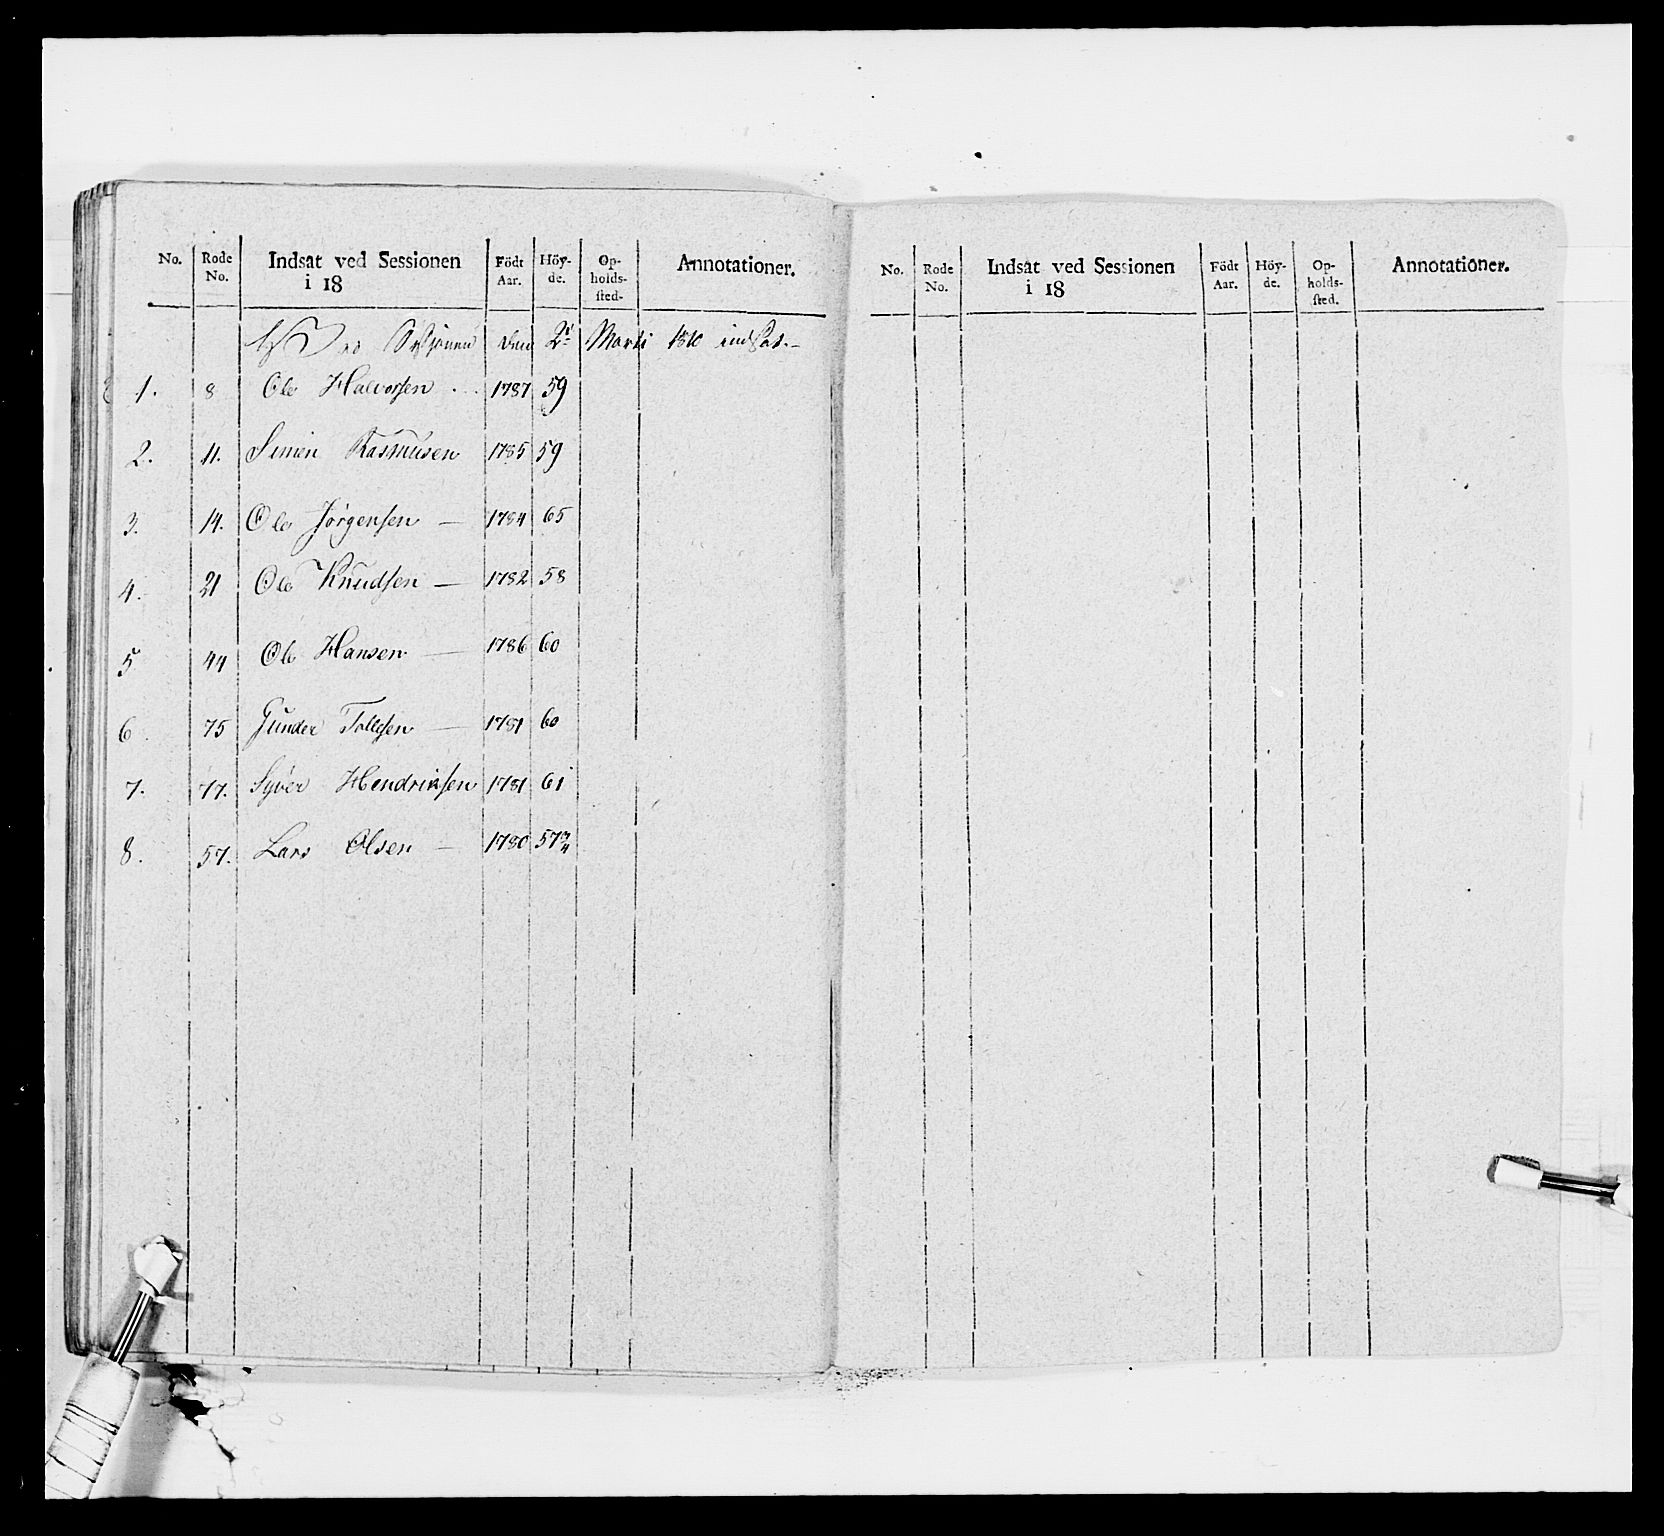 No. Rode No. Indsat ved Sessionen i 18 Födt Aar. Höyde. Opholdssted. Annotationer.
Ved Sessjonen den 2d Marti 1810 indsat.—
1. 8 Ole Halvorsen 1787 59
2. 11. Simen Rasmusen 1785 59
3. 14. Ole Jörgensen — 1784 65
4. 21 Ole Knudsen — 1782 58
5 44 Ole Hansen — 1786 60
6. 75 Gunder Tollefsen — 1781 60
7. 77. Syver Hendriksen 1781 61
8. 57. Lars Olsen — 1780 57¾
No. Rode No. Indsat ved Sessionen i 18 Födt Aar. Höyde. Opholdssted. Annotationer.